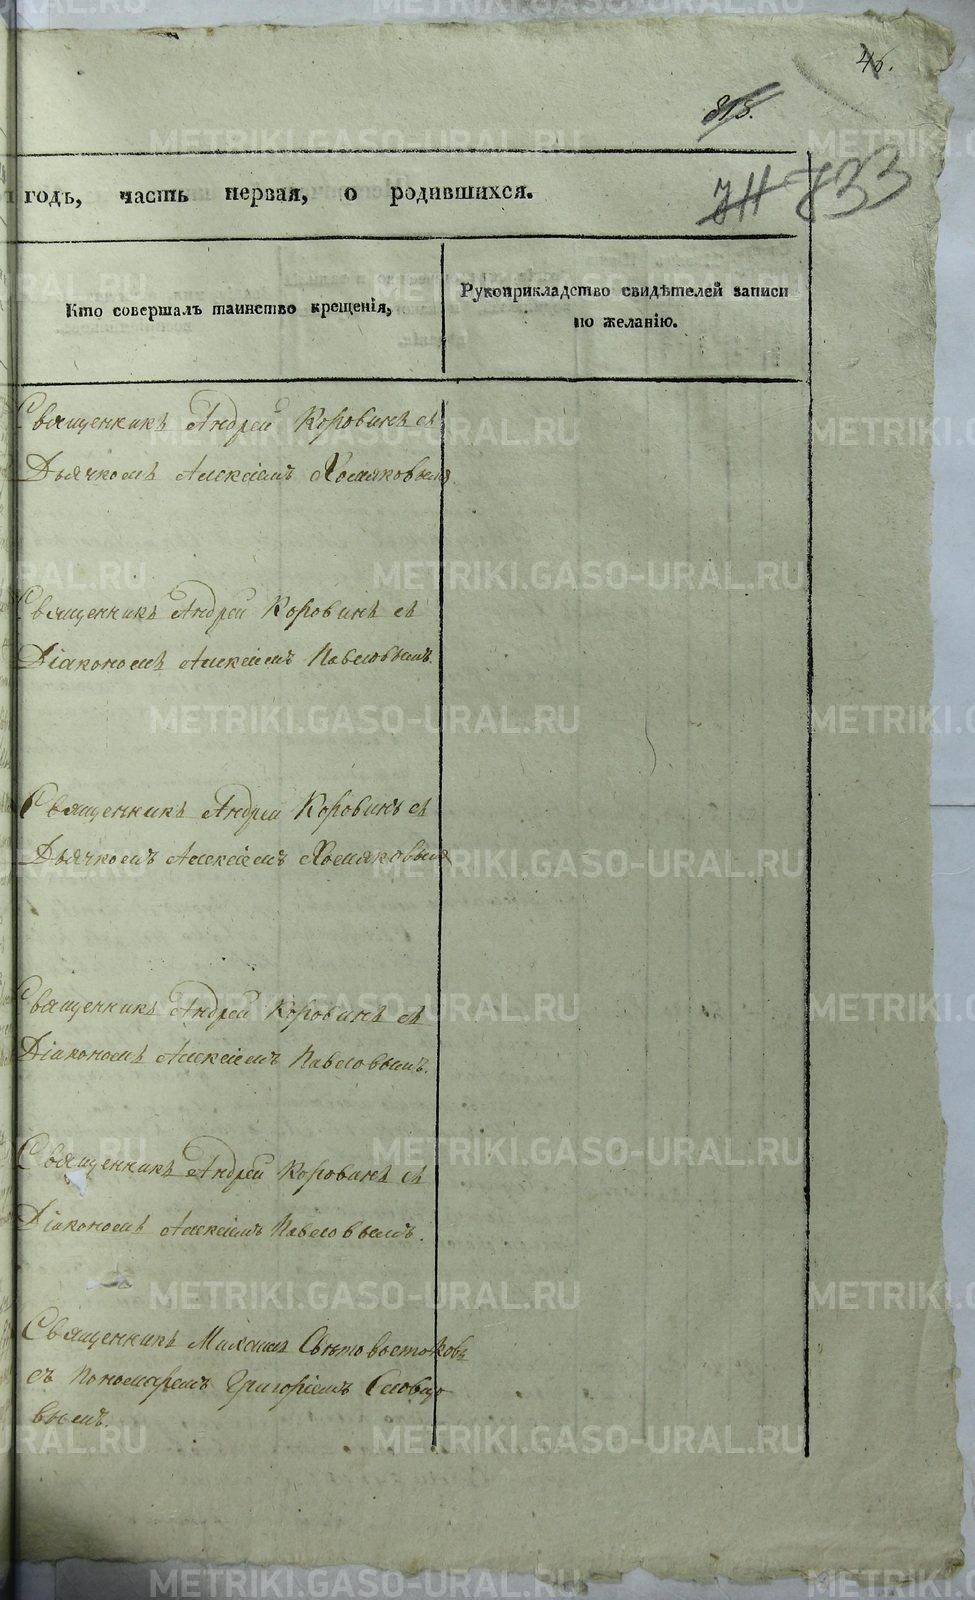 46.
818.
711 833
годъ, часть первая, о родившихся.
Кто совершалъ таинство крещенія,
Рукоприкладство свидѣтелей записи
по желанію.
Священникъ Андрей Коровинъ съ
Дьячкомъ Алексіемъ Хомяковымъ
Священникъ Андрей Коровинъ съ
Діакономъ Алексіемъ Павловымъ.
Священникъ Андрей Коровинъ съ
Дьячкомъ Алексіемъ Хомяковымъ
Священникъ Андрей Коровинъ съ
Діакономъ Алексіемъ Павловымъ.
Священникъ Андрей Коровинъ съ
Діакономъ Алексіемъ Павловымъ.
Священникъ Михаилъ Свѣтовостоковъ
съ Пономаремъ Григоріемъ Словцо
вымъ.
METRIKI.GASO-URAL.RU